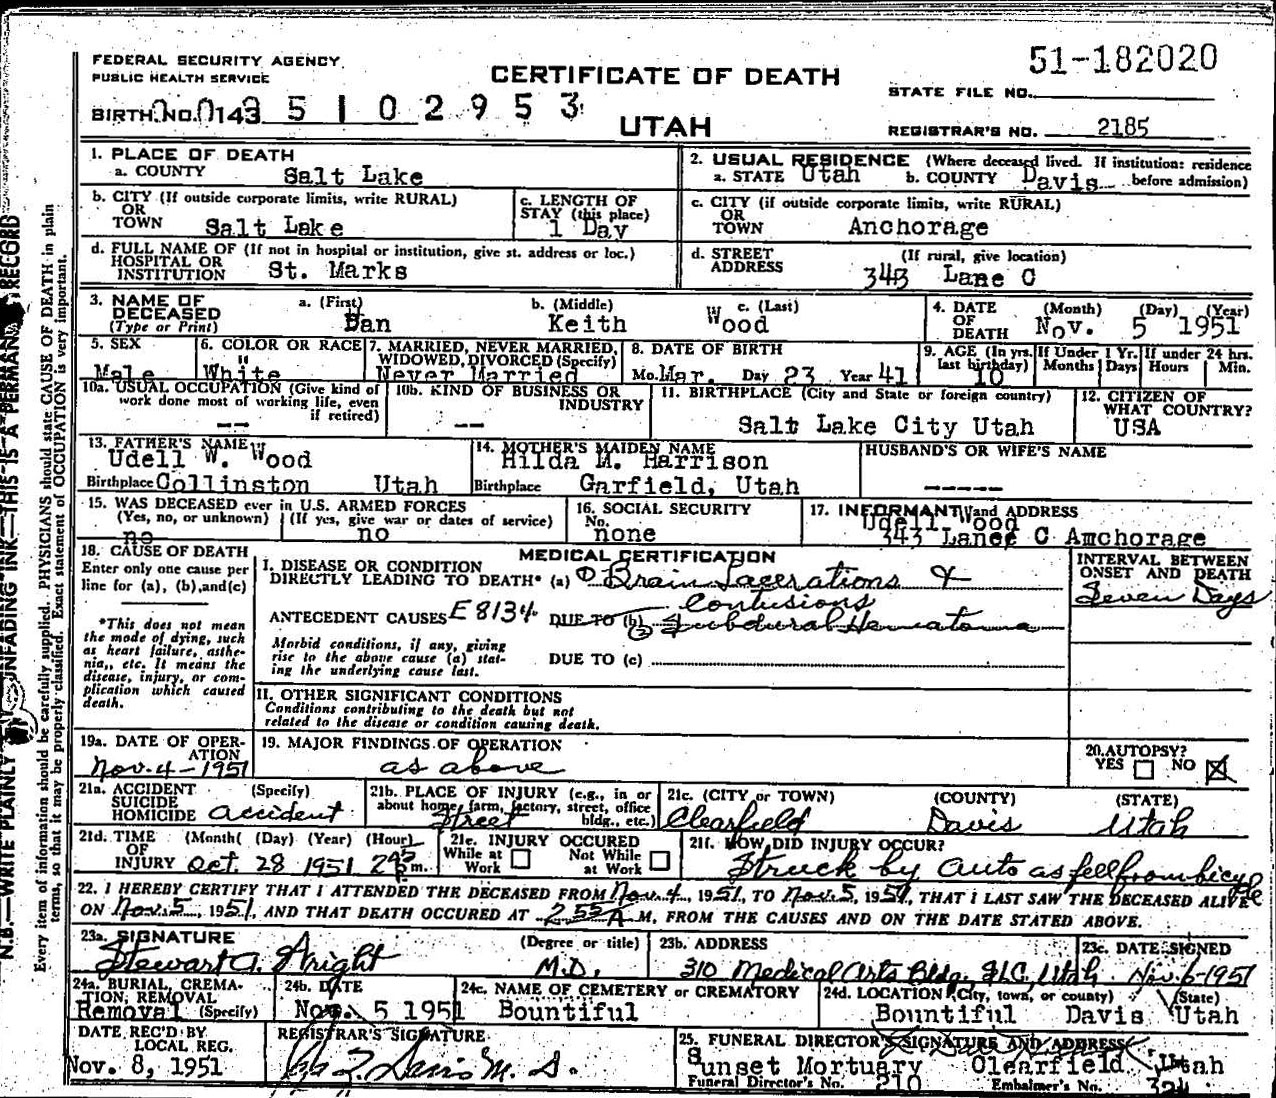 51-182020
FEDERAL SECURITY AGENCY
PUBLIC HEALTH SERVICE
CERTIFICATE OF DEATH
STATE FILE NO.
BIRTH NO. 0143 5 1 0 2 9 5 3
UTAH
REGISTRAR'S NO. 2185
1. PLACE OF DEATH
a. COUNTY Salt Lake
2. USUAL RESIDENCE (Where deceased lived. If institution: residence before admission)
a. STATE Utah b. COUNTY Davis
b. CITY (If outside corporate limits, write RURAL) OR TOWN Salt Lake
c. LENGTH OF STAY (this place) 1 Day
c. CITY (if outside corporate limits, write RURAL) OR TOWN Anchorage
d. FULL NAME OF (If not in hospital or institution, give st. address or loc.) HOSPITAL OR INSTITUTION St. Marks
d. STREET ADDRESS (If rural, give location) 343 Lane C
3. NAME OF DECEASED (Type or Print) a. (First) Dan b. (Middle) Keith c. (Last) Wood
4. DATE OF DEATH (Month) (Day) (Year) Nov. 5 1951
5. SEX Male
6. COLOR OR RACE White
7. MARRIED, NEVER MARRIED, WIDOWED, DIVORCED (Specify) Never Married
8. DATE OF BIRTH Mo. Mar. Day 23 Year 41
9. AGE (In yrs. last birthday) 10 If Under 1 Yr. Months Days If under 24 hrs. Hours Min.
10a. USUAL OCCUPATION (Give kind of work done most of working life, even if retired) --
10b. KIND OF BUSINESS OR INDUSTRY --
11. BIRTHPLACE (City and State or foreign country) Salt Lake City Utah
12. CITIZEN OF WHAT COUNTRY? USA
13. FATHER'S NAME Udell W. Wood
Birthplace Collinston Utah
14. MOTHER'S MAIDEN NAME Hilda M. Harrison
Birthplace Garfield, Utah
HUSBAND'S OR WIFE'S NAME -----
15. WAS DECEASED ever in U.S. ARMED FORCES
(Yes, no, or unknown) no (If yes, give war or dates of service) no
16. SOCIAL SECURITY No. none
17. INFORMANT and ADDRESS Udell Wood
343 Lanec C Amchorage
18. CAUSE OF DEATH
Enter only one cause per line for (a), (b), and (c)
*This does not mean the mode of dying, such as heart failure, asthenia, etc. It means the disease, injury, or complication which caused death.
MEDICAL CERTIFICATION
I. DISEASE OR CONDITION DIRECTLY LEADING TO DEATH* (a) ① Brain Lacerations & Contusions
ANTECEDENT CAUSES E8134 DUE TO (b) ② Subdural Hematoma
Morbid conditions, if any, giving rise to the above cause (a) stating the underlying cause last.
DUE TO (c)
INTERVAL BETWEEN ONSET AND DEATH
Seven Days
II. OTHER SIGNIFICANT CONDITIONS
Conditions contributing to the death but not related to the disease or condition causing death.
19a. DATE OF OPERATION Nov. 4-1951
19. MAJOR FINDINGS OF OPERATION as above
20. AUTOPSY? YES NO X
21a. ACCIDENT SUICIDE HOMICIDE (Specify) accident
21b. PLACE OF INJURY (e.g., in or about home, farm, factory, street, office bldg., etc.) Street
21c. (CITY or TOWN) (COUNTY) (STATE)
Clearfield Davis Utah
21d. TIME OF INJURY (Month) (Day) (Year) (Hour) Oct. 28 1951 245 m.
21e. INJURY OCCURED While at Work Not While at Work
21f. HOW DID INJURY OCCUR?
Struck by auto as fell from bicycle
22. I HEREBY CERTIFY THAT I ATTENDED THE DECEASED FROM Nov. 4, 1951, TO Nov. 5, 1951, THAT I LAST SAW THE DECEASED ALIVE
ON Nov. 5, 1951, AND THAT DEATH OCCURED AT 2:55 A M, FROM THE CAUSES AND ON THE DATE STATED ABOVE.
23a. SIGNATURE (Degree or title) Stewart A. Wright M.D.
23b. ADDRESS 310 Medical Arts Bldg, SLC, Utah
23c. DATE SIGNED Nov. 6-1951
24a. BURIAL, CREMATION, REMOVAL (Specify) Removal
24b. DATE Nov. 5 1951
24c. NAME OF CEMETERY or CREMATORY Bountiful
24d. LOCATION (City, town, or county) (State) Bountiful Davis Utah
DATE REC'D BY LOCAL REG. Nov. 8, 1951
REGISTRAR'S SIGNATURE
25. FUNERAL DIRECTOR'S SIGNATURE AND ADDRESS
Sunset Mortuary Clearfield Utah
Funeral Director's No. 210 Embalmer's No. 324
N.B.—WRITE PLAINLY UNFADING INK—THIS IS A PERMANENT RECORD
Every item of information should be carefully supplied. PHYSICIANS should state CAUSE OF DEATH in plain
terms, so that it may be properly classified. Exact statement of OCCUPATION is very important.